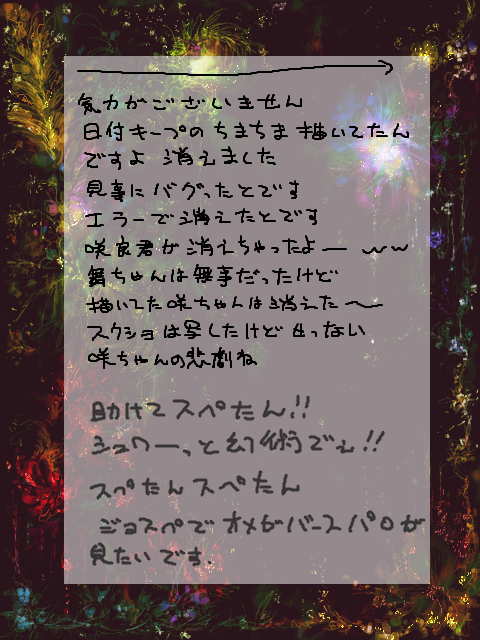 気力がございません
日付キープのちまちま描いてたん
ですよ 消えました
見事にバグったとです
エラーで消えたとです
咲良君が消えちゃったよー
舞ちゃんは無事だったけど
描いてた咲ちゃんは消えた〜
スクショは写したけど
咲ちゃんの悲劇ね
助けてスペたん!!
シュワーっと幻術でぇ!!
スペたんスペたん
ジョスペでオメガバースパロが
見たいです.